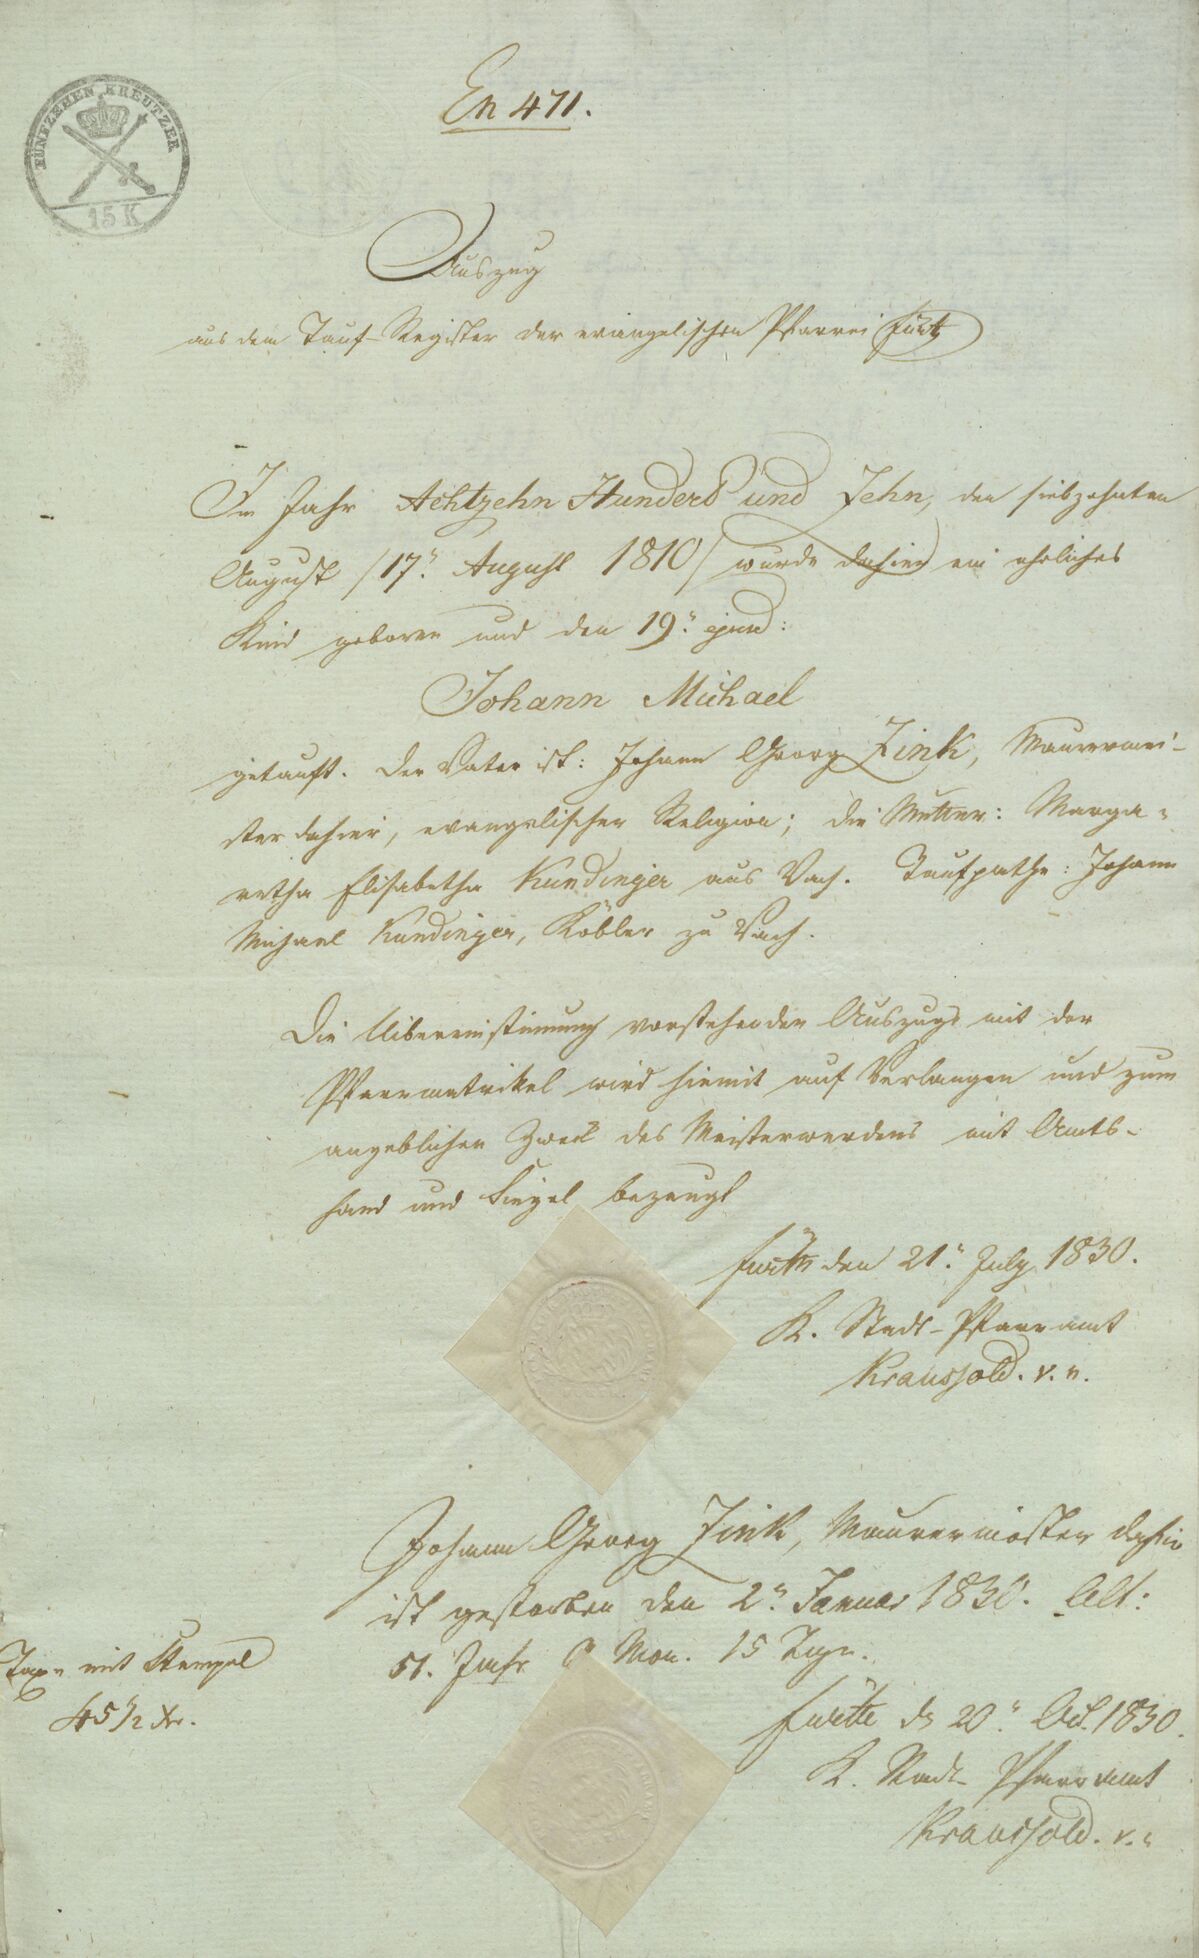 FÜNFZEHEN KREUTZER
15 K
En 471.
Auszug
aus dem Tauf-Register der evangelischen Pfarrei Fürth
Im Jahr Achtzehn Hundert und Zehn, den siebzehnten
August /17." August 1810/ wurde dahier ein ehrliches
Kind geboren und den 19." ejusd:
Johann Michael
getauft. Der Vater ist: Johann Georg Zink, Maurermei-
ster dahier, evangelischer Religion; die Mutter: Marga-
retha Elisabetha Kundinger aus Vach. Taufpathe: Johann
Michael Kundinger, Köbler zu Vach.
Die Uibereinstimmung vorstehenden Auszugs mit der
Pfarrmatrikel wird hiemit auf Verlangen und zum
angeblichen Zweck des Meisterwerdens mit Amts-
hand und Siegel bezeugt
Fürth den 21." July 1830.
K. Stadt-Pfarramt
Kraussold. v. n.
Johann Georg Zink, Maurermeister dahier
ist gestorben den 2." Januar 1830. Alt:
51. Jahr Mon. 15 Tage.
Taxe mit Stempel
45 1/2 Xr.
Fürth d 20." Oct. 1830.
K. Stadt-Pfarramt
Kraussold. v.